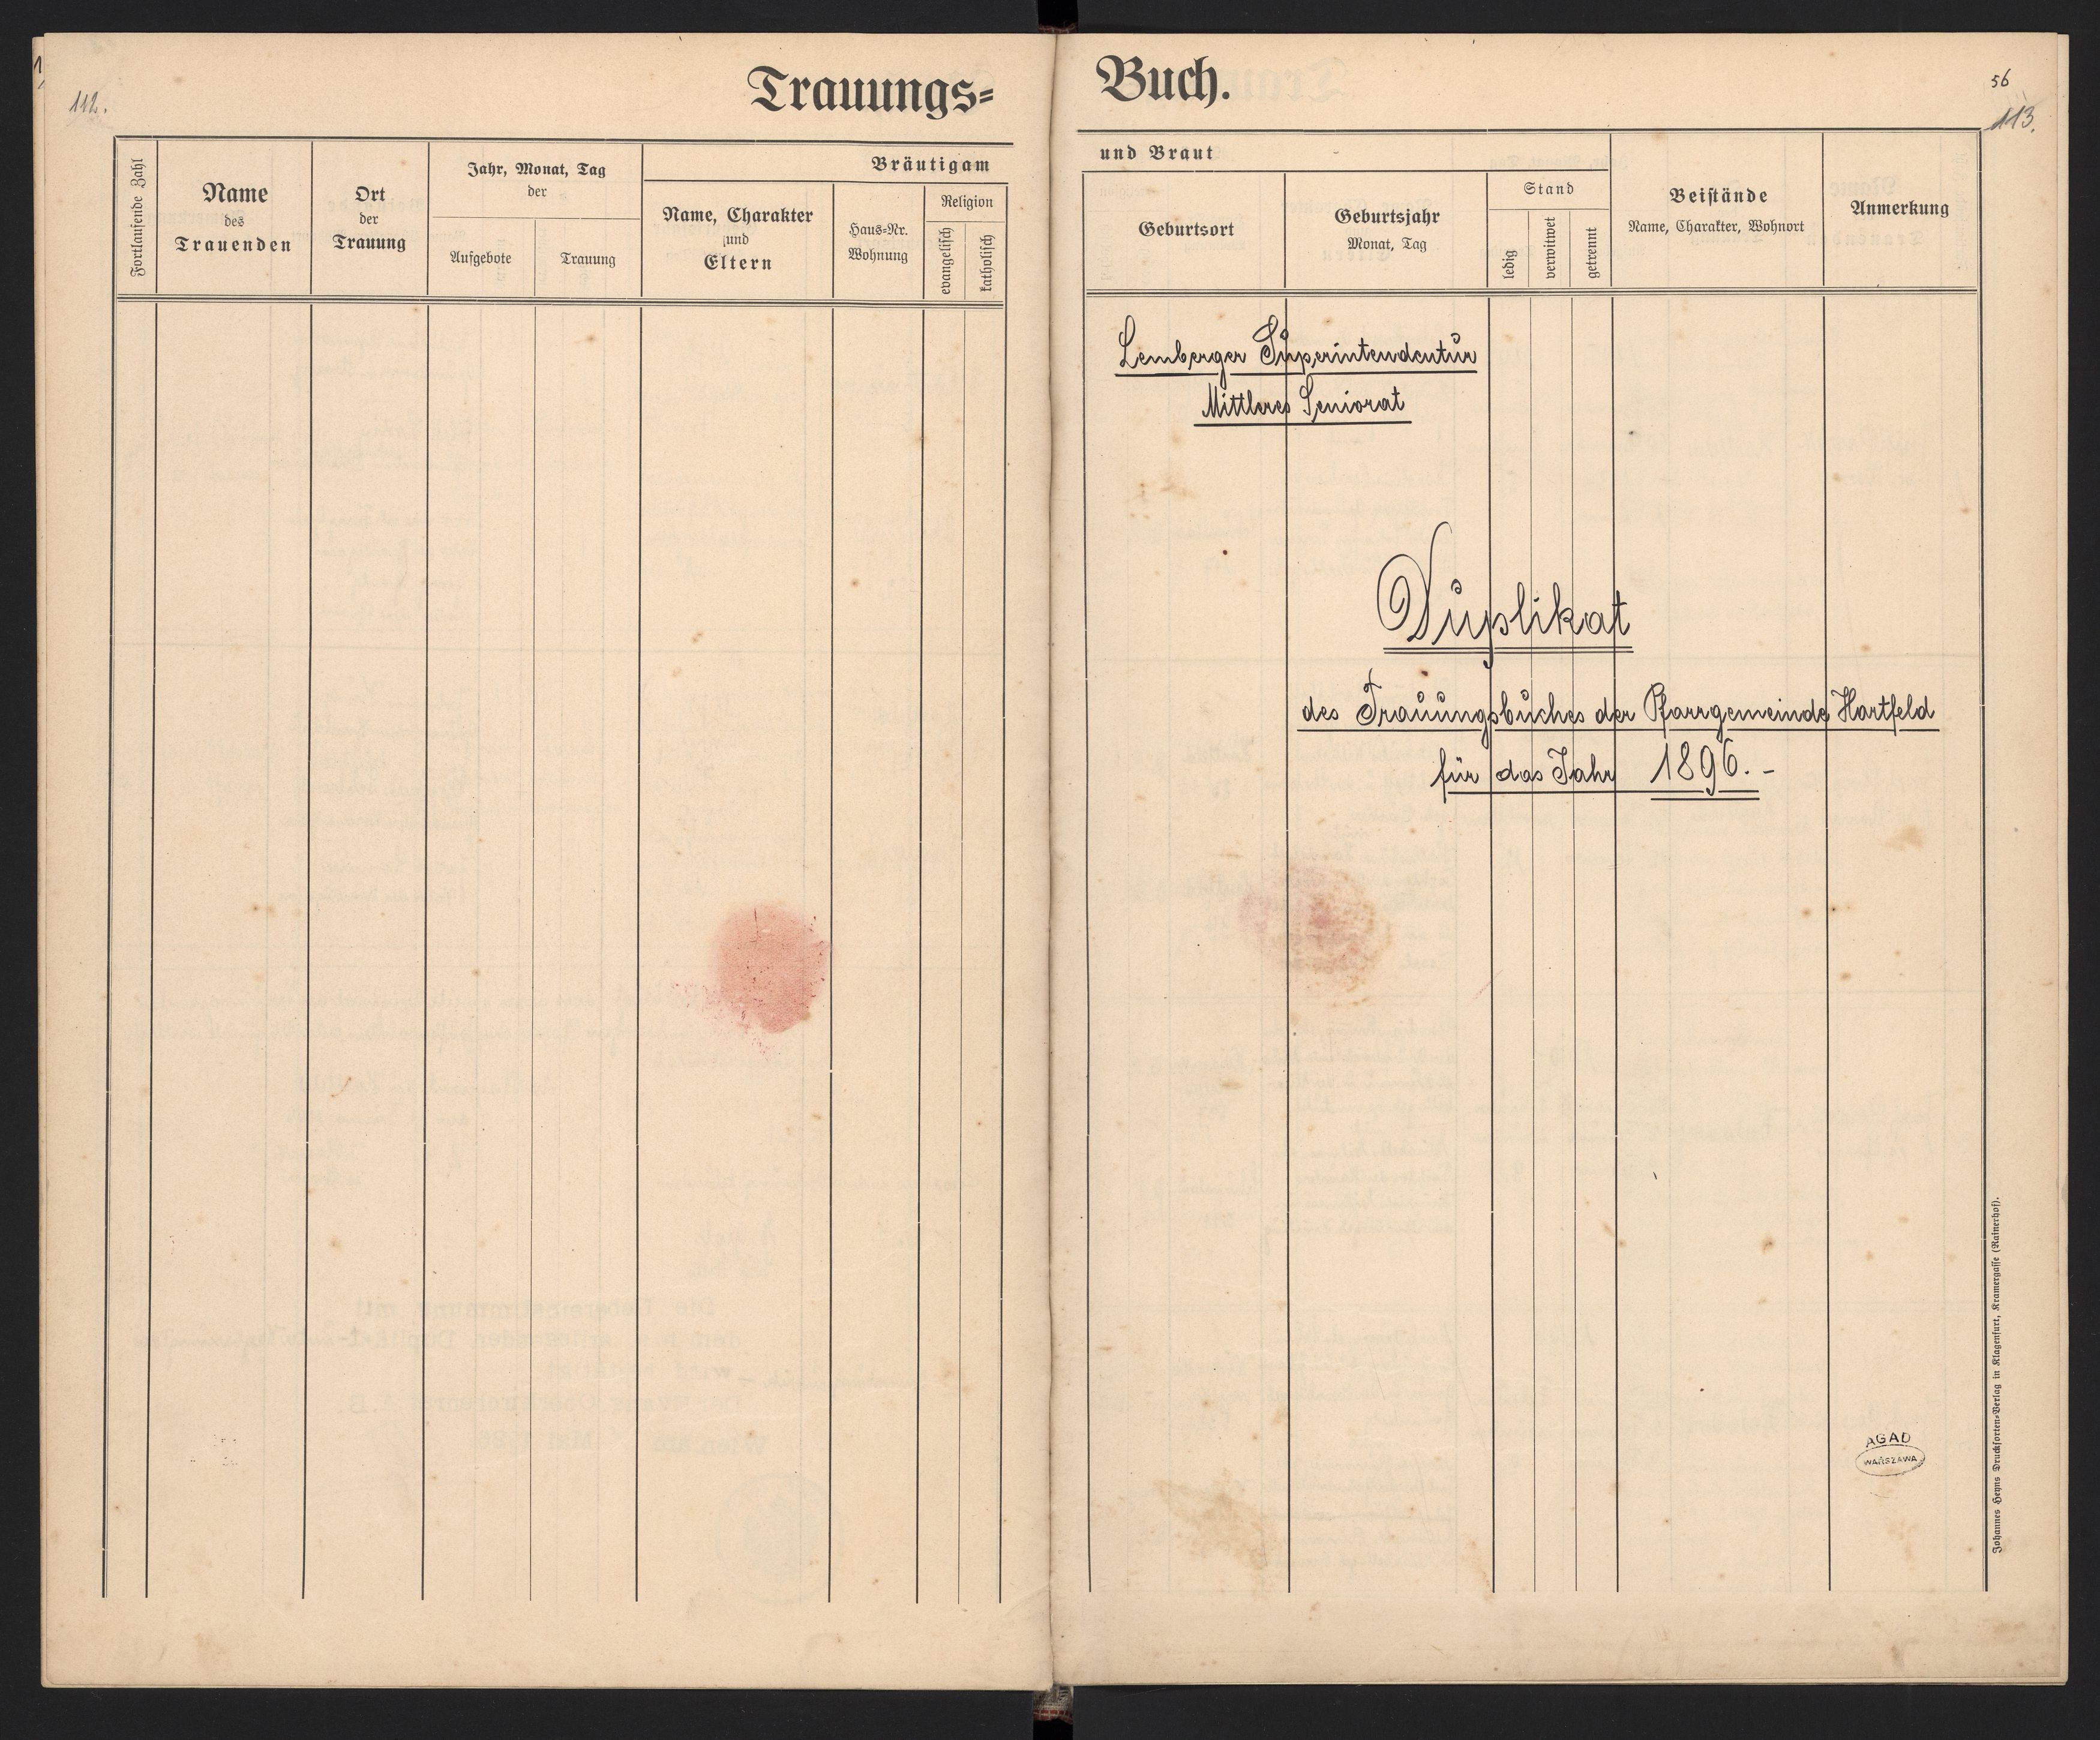 112.
Trauungs=
Fortlaufende Zahl
Name
des
Trauenden
Ort
der
Trauung
Jahr, Monat, Tag
der
Aufgebote
Trauung
Bräutigam
Name, Charakter
und
Eltern
Haus=Nr.
Wohnung
Religion
evangelisch
katholisch
Buch.
56
113.
und Braut
Geburtsort
Geburtsjahr
Monat, Tag
Stand
ledig
verwitwet
getrennt
Beistände
Name, Charakter, Wohnort
Anmerkung
Lemberger Superintendentur
Mittleres Seniorat
Duplikat
des Trauungsbuches der Pfarrgemeinde Hartfeld
für das Jahr 1896. -
AGAD
WARSZAWA
Johannes Heyns Drucksorten=Verlag in Klagenfurt, Kramergasse (Rainerhof).